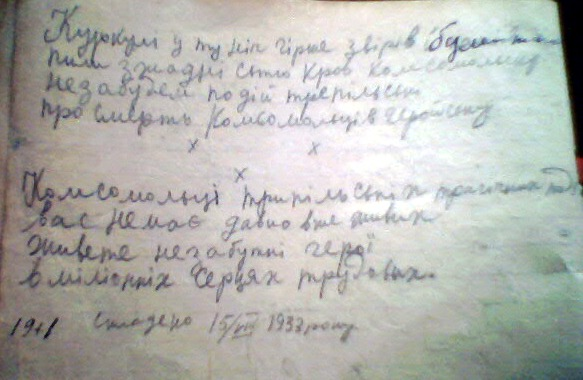 Куркулі у ту ніч гірше звірів
пили з жадністю кров комсомольц
незабудем подій трепільськ
про смерть комсомольців геройську
х х
х
Комсомольці трипільських трагічних
вас немає давно вже живих
живете незабутні герої
в міліонніх серцях трудових.
Складено 15/VII 1933 року